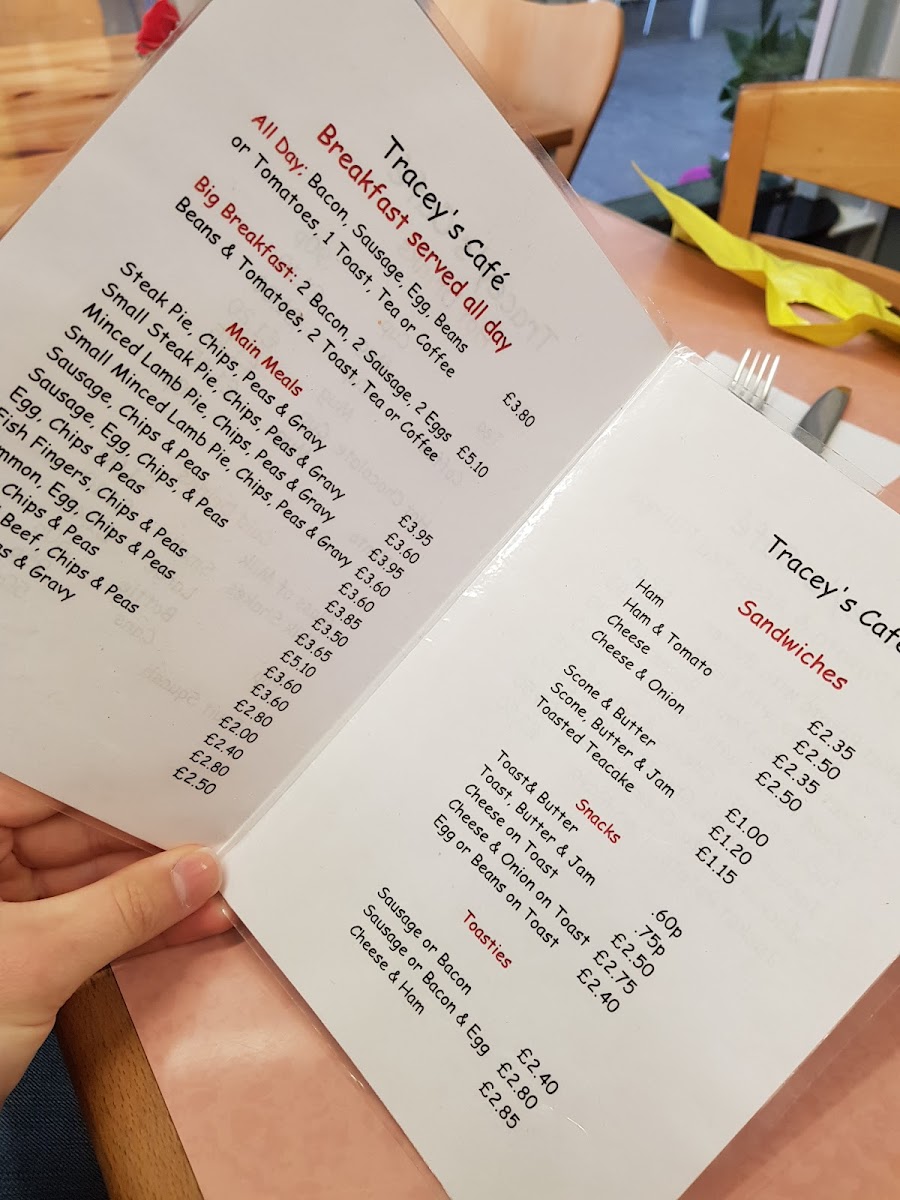 Tracey's Café
Breakfast served all day
All Day: Bacon, Sausage, Egg, Beans
or Tomatoes, 1 Toast, Tea or Coffee £3.80
Big Breakfast: 2 Bacon, 2 Sausage, 2 Eggs
Beans & Tomatoes, 2 Toast, Tea or Coffee £5.10
Main Meals
Steak Pie, Chips, Peas & Gravy £3.95
Small Steak Pie, Chips, Peas & Gravy £3.60
Minced Lamb Pie, Chips, Peas & Gravy £3.95
Small Minced Lamb Pie, Chips, Peas & Gravy £3.60
Sausage, Chips & Peas £3.60
Sausage, Egg, Chips, & Peas £3.85
Egg, Chips & Peas £3.50
Fish Fingers, Chips & Peas £3.65
Egg, Chips & Peas £5.10
Chips & Peas £3.60
Beef, Chips & Peas £3.60
& Gravy £2.80
£2.00
£2.40
£2.80
£2.50
Tracey's Café
Sandwiches
Ham £2.35
Ham & Tomato £2.50
Cheese £2.35
Cheese & Onion £2.50
Scone & Butter £1.00
Scone, Butter & Jam £1.20
Toasted Teacake £1.15
Snacks
Toast& Butter .60p
Toast, Butter & Jam .75p
Cheese on Toast £2.50
Cheese & Onion on Toast £2.75
Egg or Beans on Toast £2.40
Toasties
Sausage or Bacon £2.40
Sausage or Bacon & Egg £2.80
Cheese & Ham £2.85